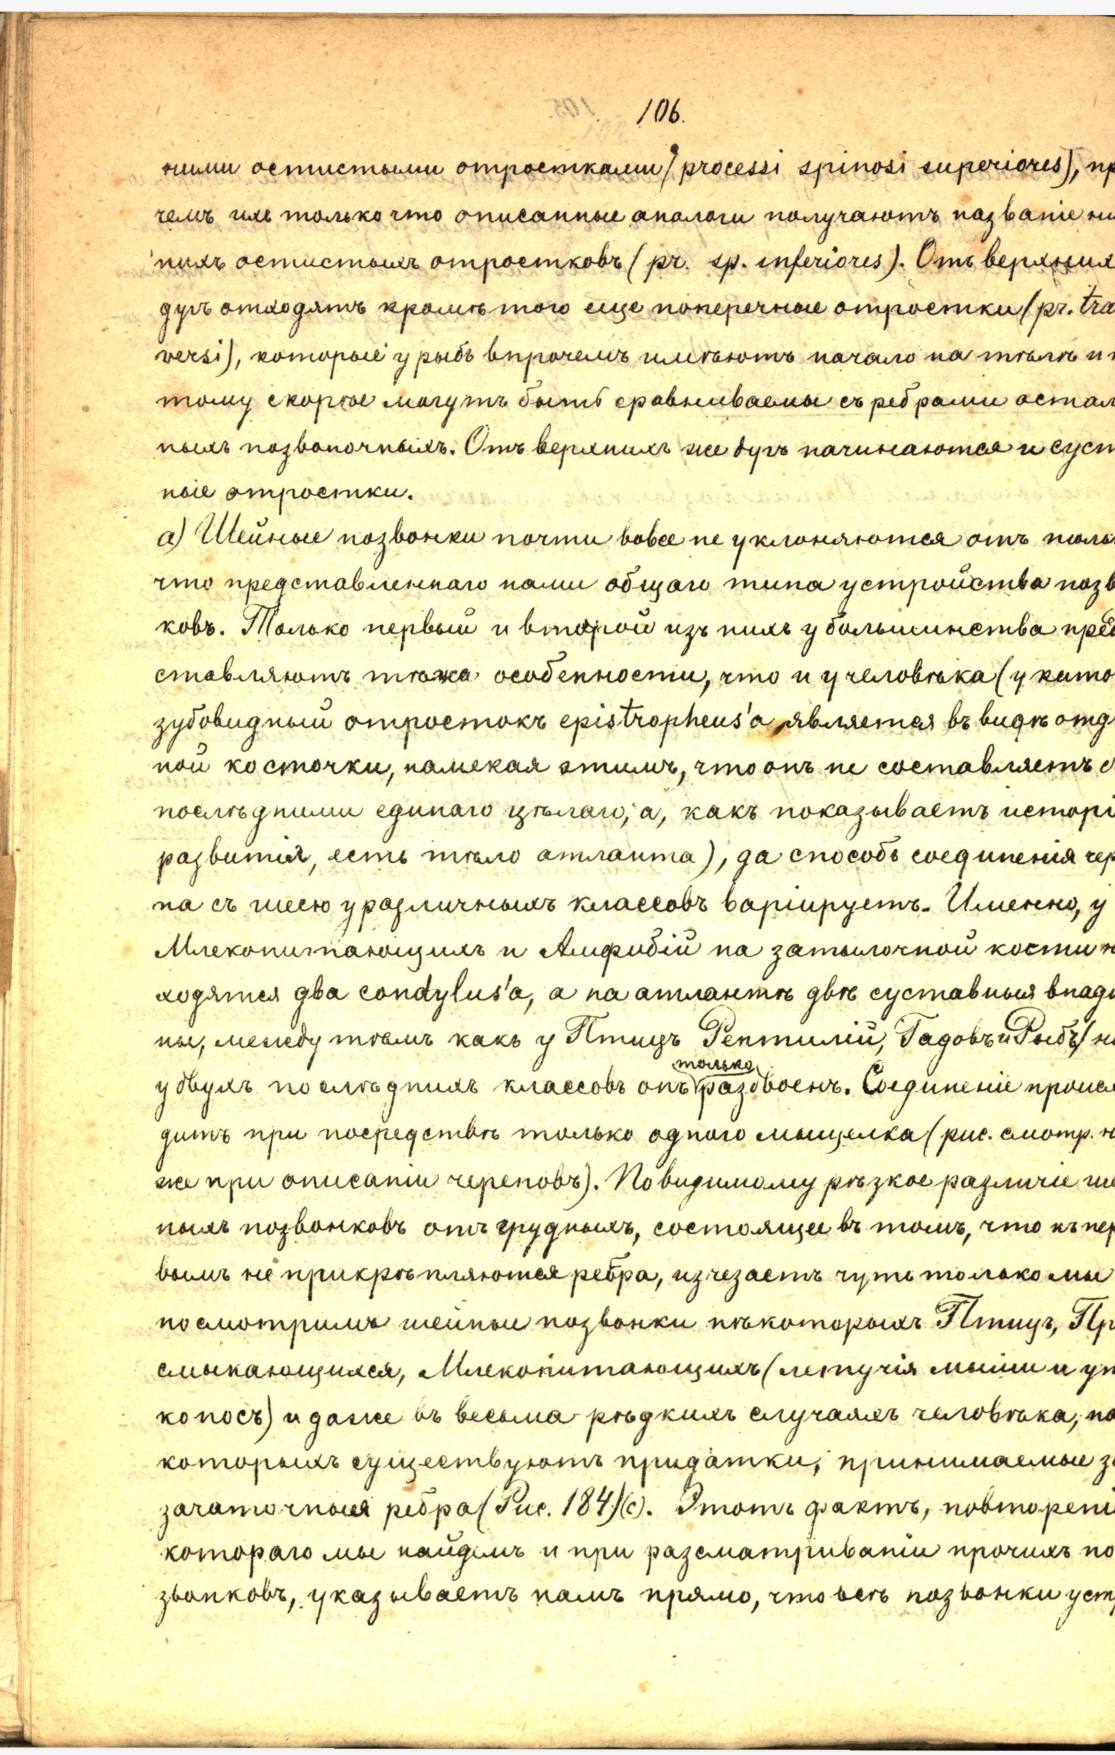 106.
ними остистыми отростками (processi spinosi superiores), пр
чемъ ихъ только что описанные аналоги получаютъ названіе ни
нихъ остистыхъ отростковъ (pr. sp. inferiores). Отъ верхних
дугъ отходятъ кромѣ того еще поперечные отростки (pr. tra
versi), которые у рыбъ впрочемъ имѣютъ начало на тѣлѣ и
тому скорѣе могутъ быть сравниваемы съ ребрами остал
ныхъ позвоночныхъ. Отъ верхнихъ же дугъ начинаются и суст
ные отростки.
а) Шейные позвонки почти вовсе не уклоняются отъ толь
что представленнаго нами общаго типа устройства позв
ковъ. Только первый и второй изъ нихъ у большинства пред
ставляютъ тѣже особенности, что и у человѣка (у кото
зубовидный отростокъ epistropheus'а является въ видѣ отд
ной косточки, намекая этимъ, что онъ не составляетъ с
послѣдними единаго цѣлаго, а, какъ показываетъ исторі
развитія, есть тѣло атланта), да способъ соединенія чер
па съ шеею у различныхъ классовъ варіируетъ. Именно, у
Млекопитающихъ и Амфибій на затылочной кости н
ходятся два condylus'а, а на атлантѣ двѣ суставныя впади
ны, между тѣмъ какъ у Птицъ Рептилій, Гадовъ и Рыбъ (н
у двухъ послѣднихъ классовъ онъ только раздвоенъ. Соединеніе происх
дитъ при посредствѣ только одного мыщелка (рис. смотр. н
же при описаніи череповъ). Повидимому рѣзкое различіе ше
ныхъ позвонковъ отъ грудныхъ, состоящее въ томъ, что къ пер
вымъ не прикрѣпляются ребра, изчезаетъ чуть только мы
посмотримъ шейные позвонки нѣкоторыхъ Птицъ, Пр
смыкающихся, Млекопитающихъ (летучія мыши и ут
коносъ) и даже въ весьма рѣдкихъ случаяхъ человѣка, на
которыхъ существуютъ придатки, принимаемые з
зачаточныя ребра (Рис. 184)(c). Этотъ фактъ, повторені
котораго мы найдемъ и при разсматриваніи прочихъ по
звонковъ, указываетъ намъ прямо, что всѣ позвонки уст